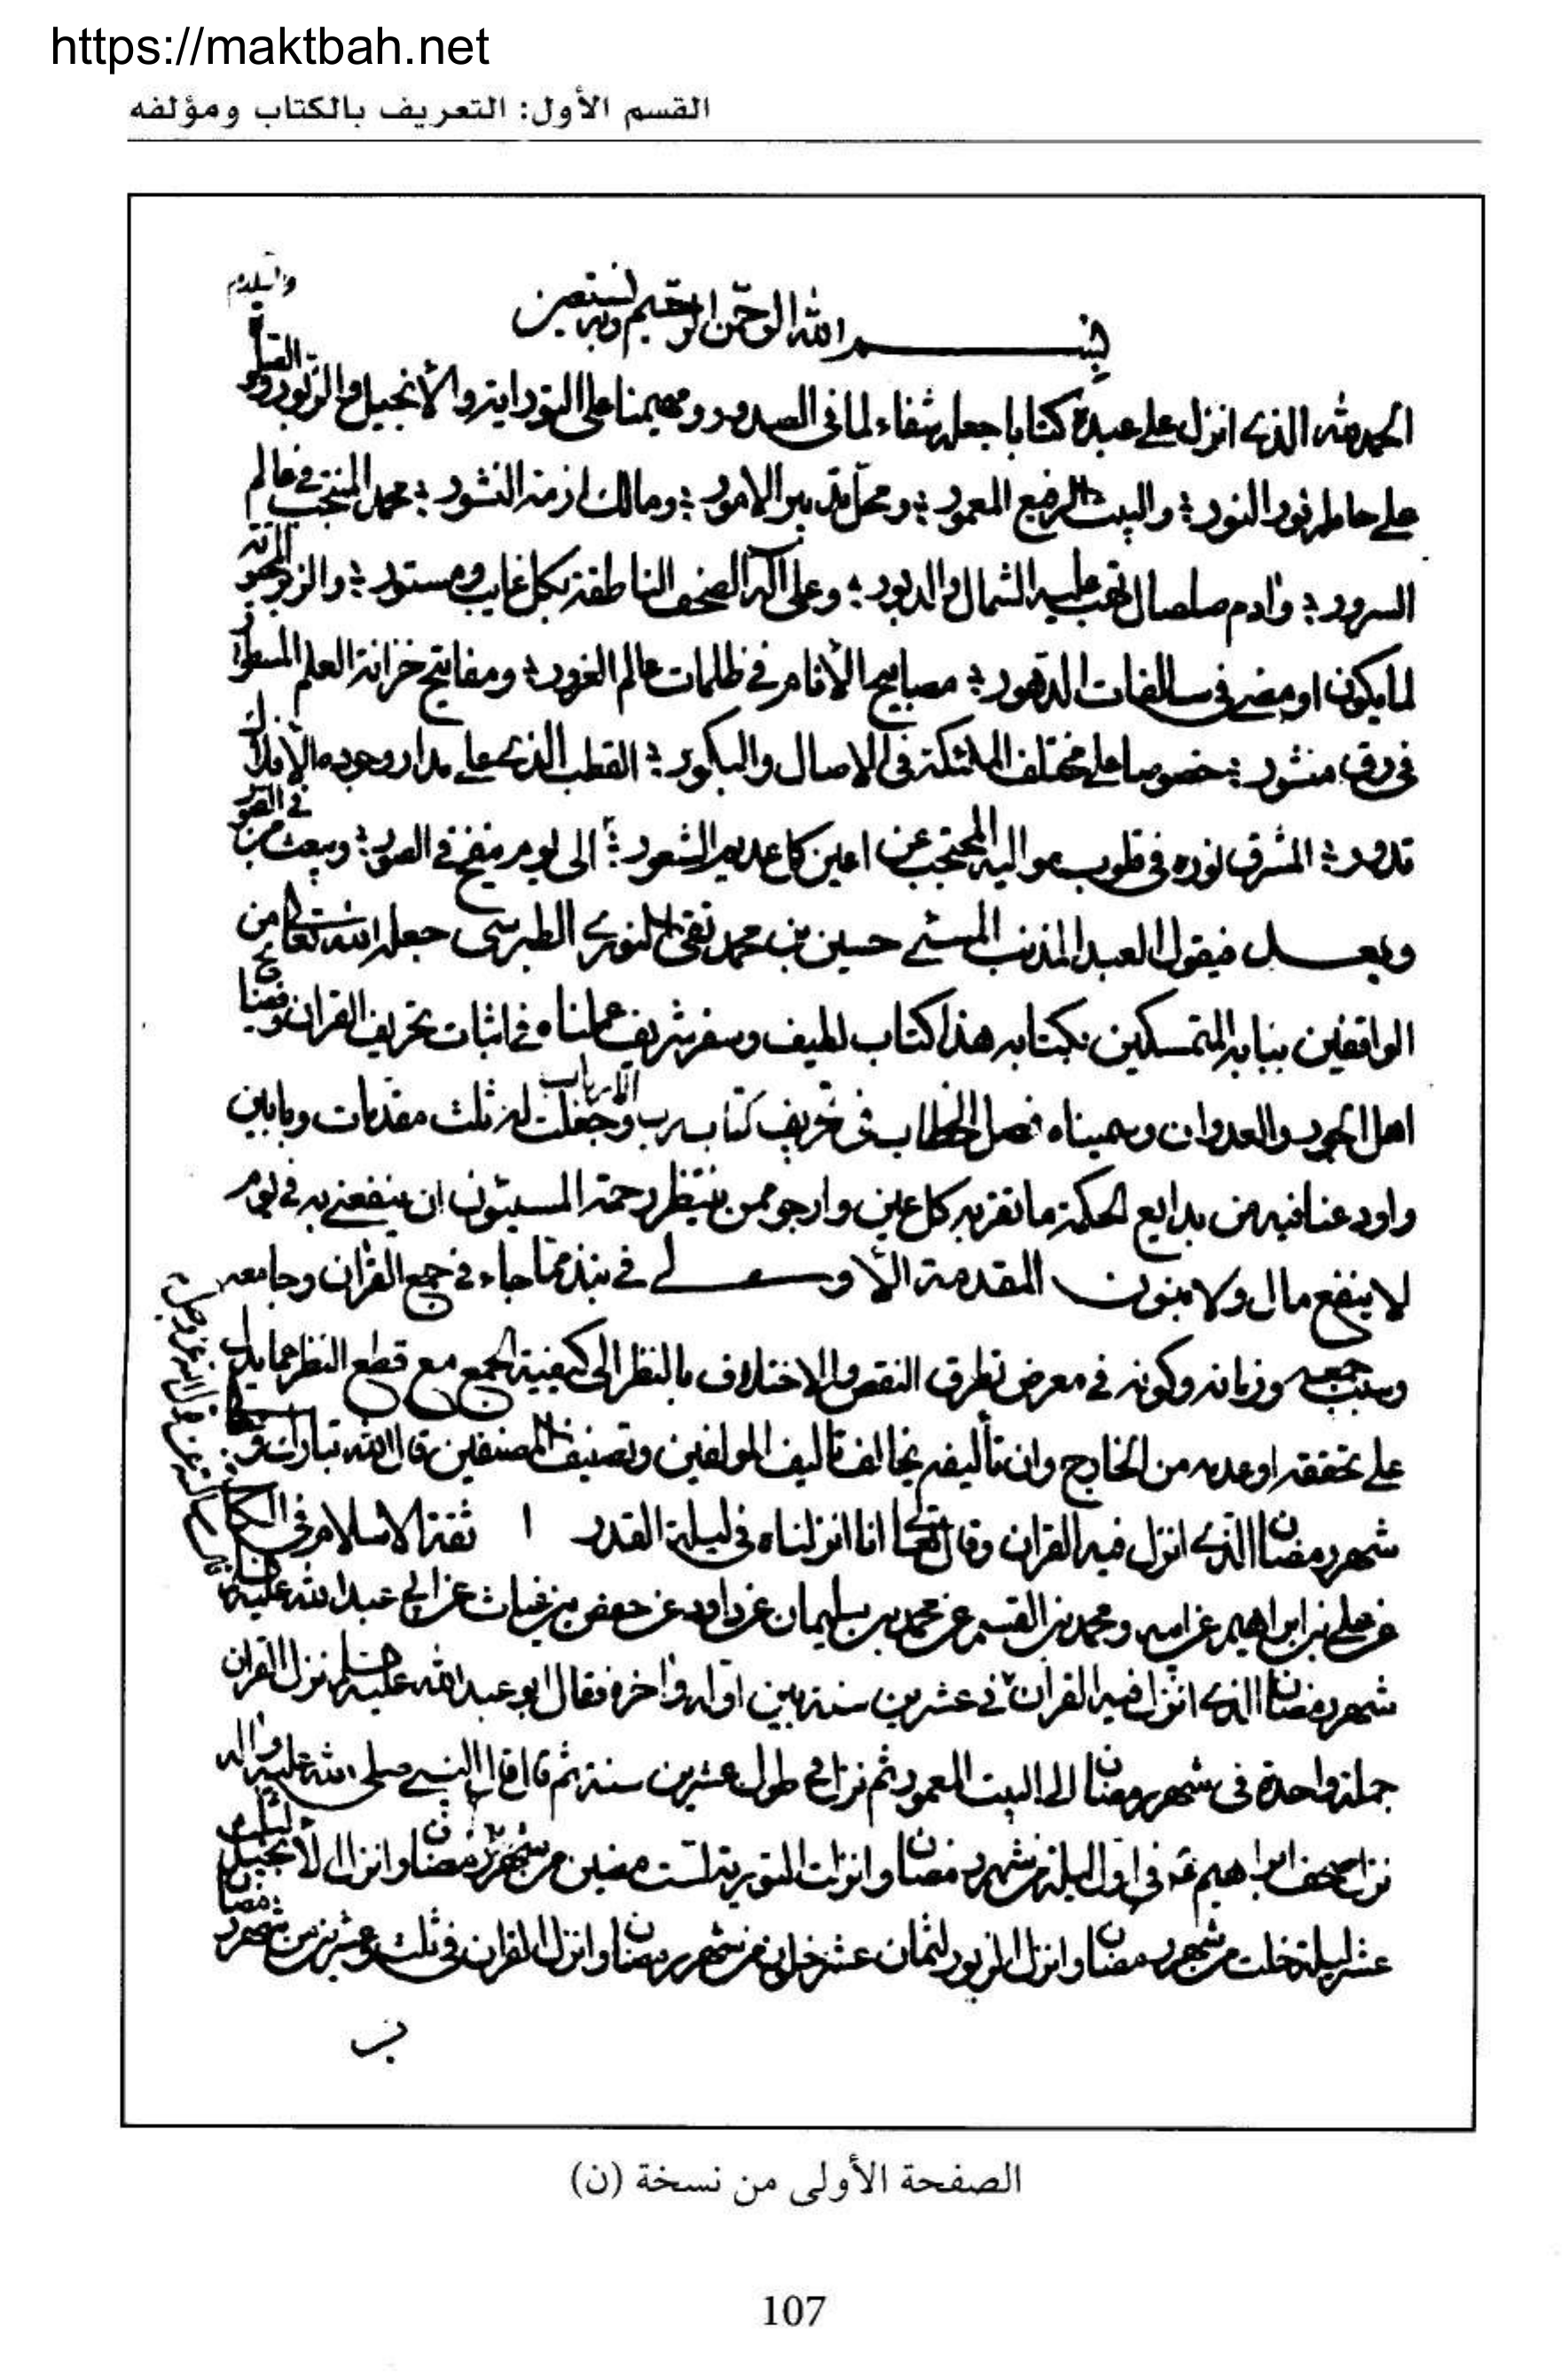 https://maktbah.net
القسم الأول: التعريف بالكتاب ومؤلفه
بسم الله الرحمن الرحيم وبه نستعين
الحمد لله الذي انزل على عبده كتابا جعله شفاء لما في الصدور ومهيمنا على التوراية والأنجيل والزبور والسلام
على حامله نور النور والبيت الرفيع المعمور ومحل تدبير الامور ومالك ازمة النشور محمد المنتجب في عالم
السرور وادم صلصال تهب عليه الشمال والدبور وعلى آله الصحف الناطقة بكل غايب ومستور والزبر
لما يكون او مضى في سالفات الدهور مصابيح الأنام في ظلمات عالم الغرور ومفاتيح خزانة العلم المسطور
في رق منشور خصوصا على مختلف الملئكة في الاصال والبكور القطب الذي على مدار وجوده الافلاك
تدور المشرق نوره في قلوب مواليه المحتجب عن اعين كل عديم الشعور الى يوم ينفخ في الصور ويبعث من في القبور
وبعد فيقول العبد المذنب المسئ حسين بن محمد تقي النوري الطبرسي جعله الله تعالى من
الواقفين ببابه المتمسكين بكتابه هذا كتاب لطيف وسفر شريف عملناه في اثبات تحريف القران وفضايح
اهل الجور والعدوان وسميناه فصل الخطاب في تحريف كتاب رب الارباب وجعلت له ثلث مقدمات وبابين
واودعنا فيه من بدايع الحكمة ما تقر به كل عين وارجو ممن ينتظر رحمته المسيئون ان ينفعني به في يوم
لا ينفع مال ولا بنون المقدمة الأولى في نبذ مما جاء في جمع القران وجامعه
وسبب جمعه وزمانه وكونه في معرض تطرق النقص والاختلاف بالنظر الى كيفية الجمع مع قطع النظر عما يدل
على تحققه او عدمه من الخارج وان تأليفه يخالف تاليف المولفين وتصنيف المصنفين قال الله تبارك وتعالى
شهر رمضان الذي انزل فيه القران وقال تعالى انا انزلناه في ليلة القدر ا ثقة الاسلام في الكافي
عن علي بن ابراهيم عن ابيه ومحمد بن القسم عن محمد بن سليمان عن داود عن حفص بن غياث عن ابي عبد الله عليه
شهر رمضان الذي انزل فيه القران في عشرين سنة بين اوله واخره فقال ابو عبد الله عليه نزل القران
جملة واحدة في شهر رمضان الى البيت المعمور ثم نزل في طول عشرين سنة ثم قال قال النبي صلى الله عليه واله
نزل صحف ابراهيم في اول ليلة من شهر رمضان وانزلت التورية لست مضين من شهر رمضان وانزل الأنجيل لثلث
عشر ليلة خلت من شهر رمضان وانزل الزبور لثمان عشر خلون من شهر رمضان وانزل القران في ثلث وعشرين من شهر رمضان
الصفحة الأولى من نسخة (ن)
107